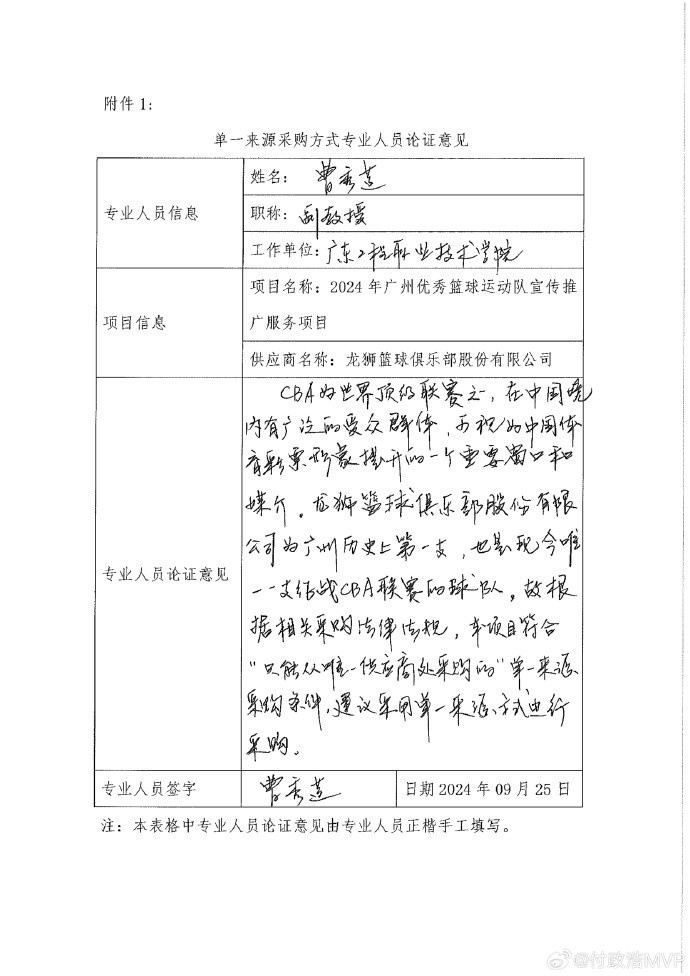 附件1:
单一来源采购方式专业人员论证意见
专业人员信息
姓名: 曹秀莲
职称: 副教授
工作单位: 广东工程职业技术学院
项目信息
项目名称: 2024年广州优秀篮球运动队宣传推
广服务项目
供应商名称: 龙狮篮球俱乐部股份有限公司
专业人员论证意见
CBA为世界顶级联赛之一, 在中国境
内有广泛的受众群体, 可视为中国体
育彩票形象提升的一个重要窗口和
媒介。龙狮篮球俱乐部股份有限
公司为广州历史上第一支, 也是现今唯
一一支征战CBA联赛的球队。故根
据相关采购法律法规, 本项目符合
"只能从唯一供应商处采购的"单一来源
采购条件, 建议采用单一来源方式进行
采购。
专业人员签字
曹秀莲
日期2024年09月25日
注: 本表格中专业人员论证意见由专业人员正楷手工填写。
@付政浩MVP